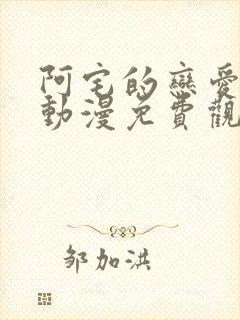 阿宅的戀愛
動漫免費觀
邹加洪